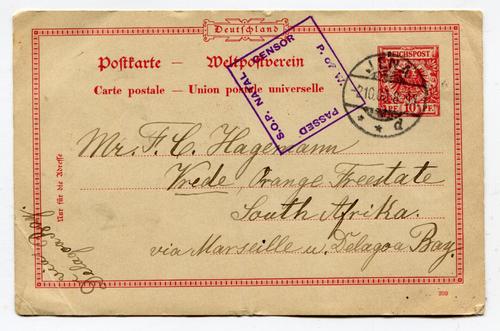 Deutschland
Postkarte — Weltpostverein
Carte postale — Union postale universelle
S.O.P. NATAL CENSOR
P. of W.
PASSED
REICHSPOST
PF 10 PF
JENA
d
Nur für die Adresse
Mr. F. C. Hagemann
Vrede Orange Freestate
South Afrika.
via Marseille u. Delagoa Bay.
via
Delagoa Bay